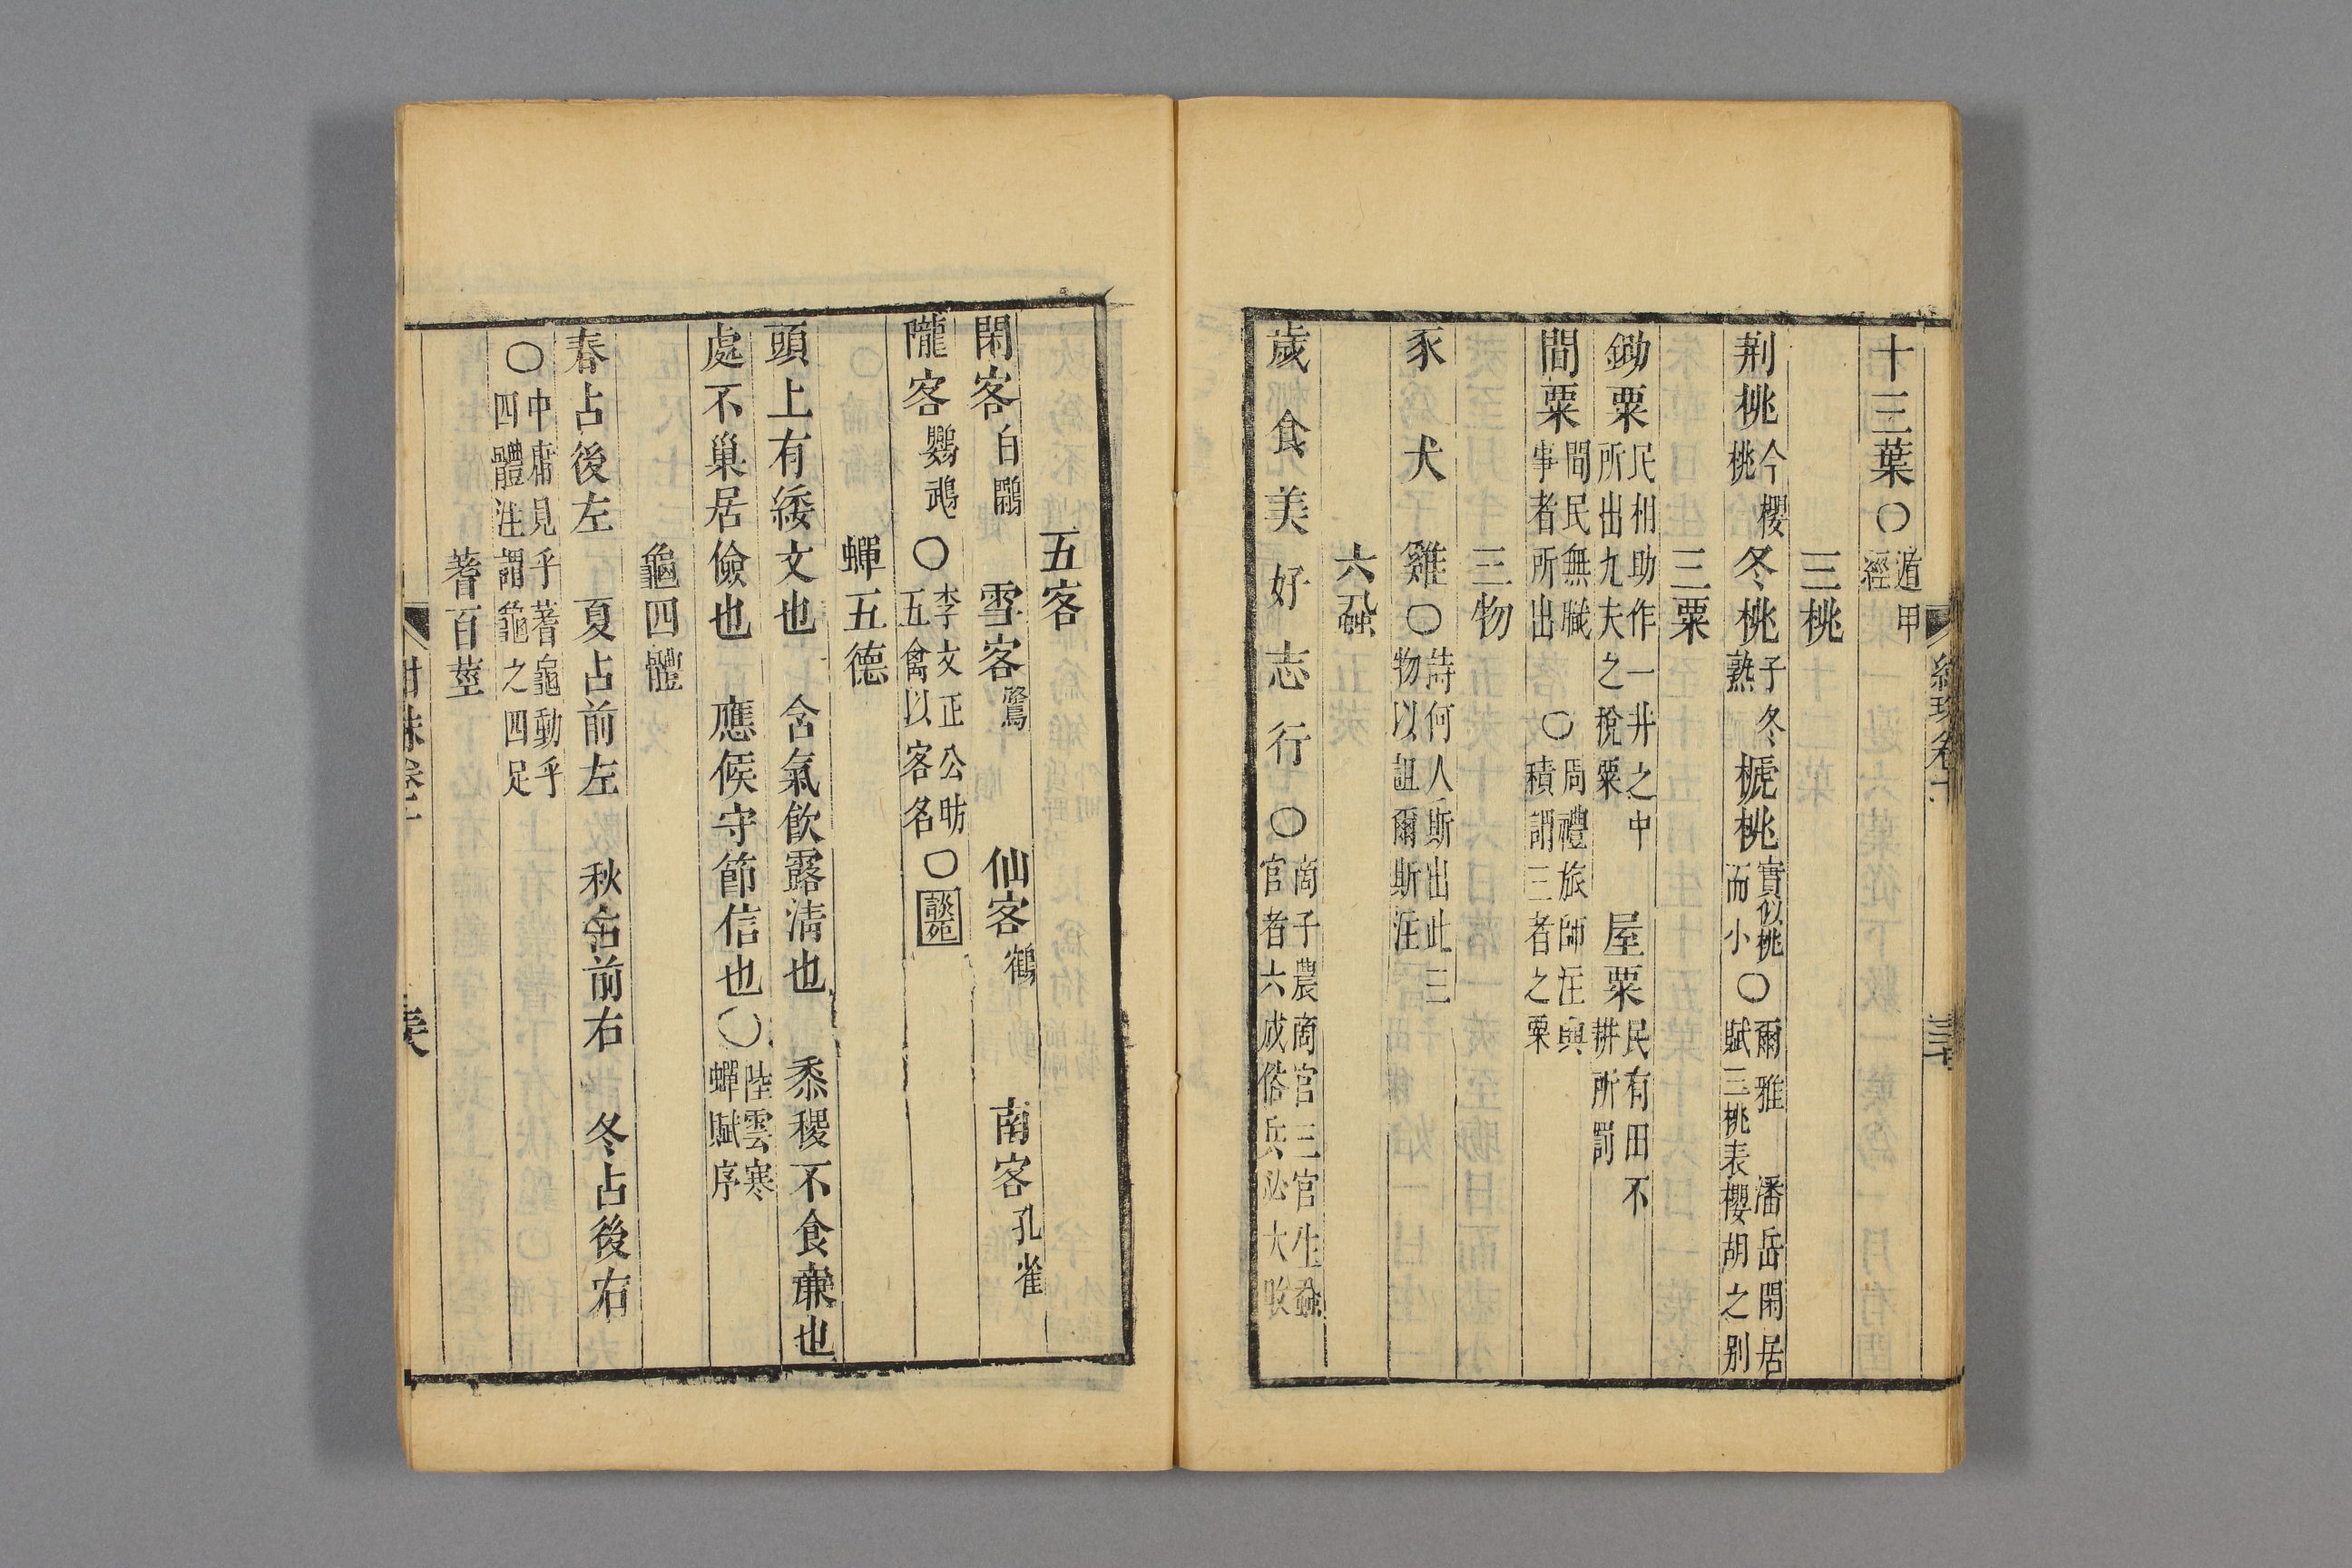 十三葉〇遁甲經
三桃
荆桃今櫻桃 冬桃子冬熟 榹桃實似桃而小〇爾雅 潘岳閑居賦三桃表櫻胡之別
三粟
鋤粟民相助作一井之中所出九夫之稅粟 屋粟民有田不耕所罰
間粟間民無職事者所出〇周禮旅師注與積謂三者之粟
三物
豕 犬 雞〇詩何人斯出此三物以詛爾斯注
六蝨
歲 食 美 好 志 行〇商子農商官三官生蝨官者六成俗兵必大敗
五客
閑客白鷴 雪客鷺 仙客鶴 南客孔雀
隴客鸚鵡〇李文正公昉五禽以客名〇談苑
蟬五德
頭上有緌文也 含氣飲露清也 黍稷不食廉也
處不巢居儉也 應候守節信也〇陸雲寒蟬賦序
龜四體
春占後左 夏占前左 秋占前右 冬占後右
〇中庸見乎蓍龜動乎四體注謂龜之四足
蓍百莖